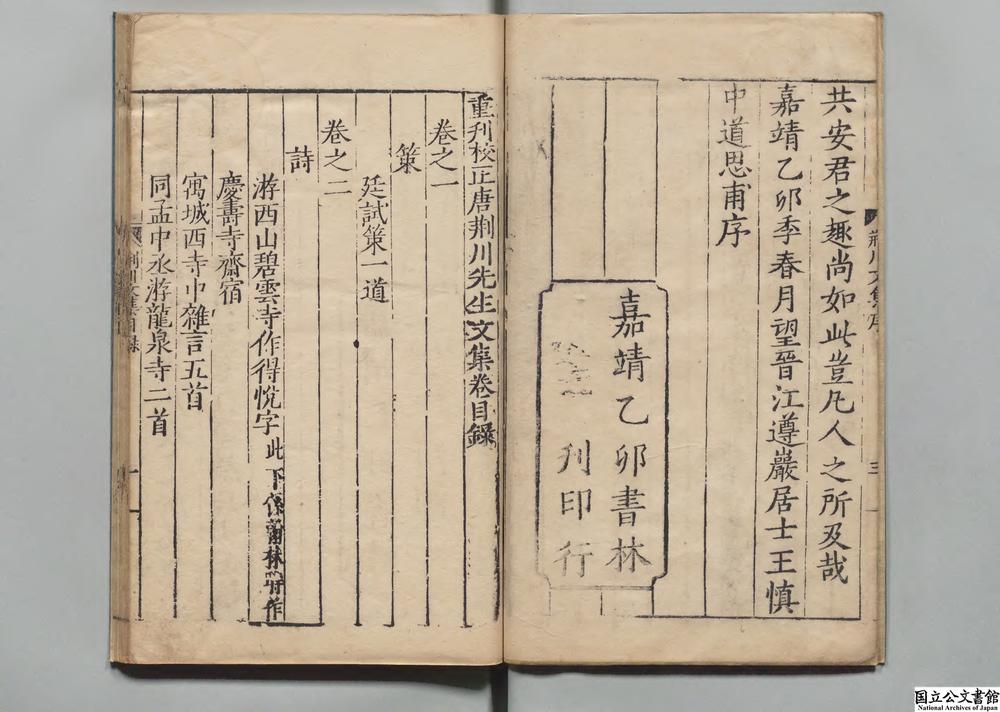 共安君之趣尚如此豈凡人之所及哉
嘉靖乙卯季春月望晉江遵巖居士王慎
中道思甫序
嘉靖乙卯書林
刊印行
荆川文集序
三
重刊校正唐荆川先生文集卷目錄
卷之一
策
廷試策一道
卷之二
詩
游西山碧雲寺作得悅字此下係翰林時作
慶壽寺齋宿
寓城西寺中雜言五首
同孟中丞游龍泉寺二首
荆川文集目錄
一
国立公文書館
National Archives of Japan